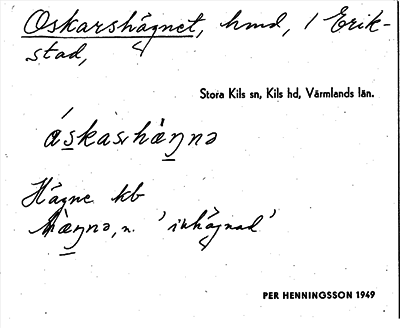 Oskarshägnet, hmd, 1 Erik-
stad,
Stora Kils sn, Kils hd, Värmlands län.
áskashæŋnə
Hägne kb
hæŋnə, n. 'inhägnad'
PER HENNINGSSON 1949